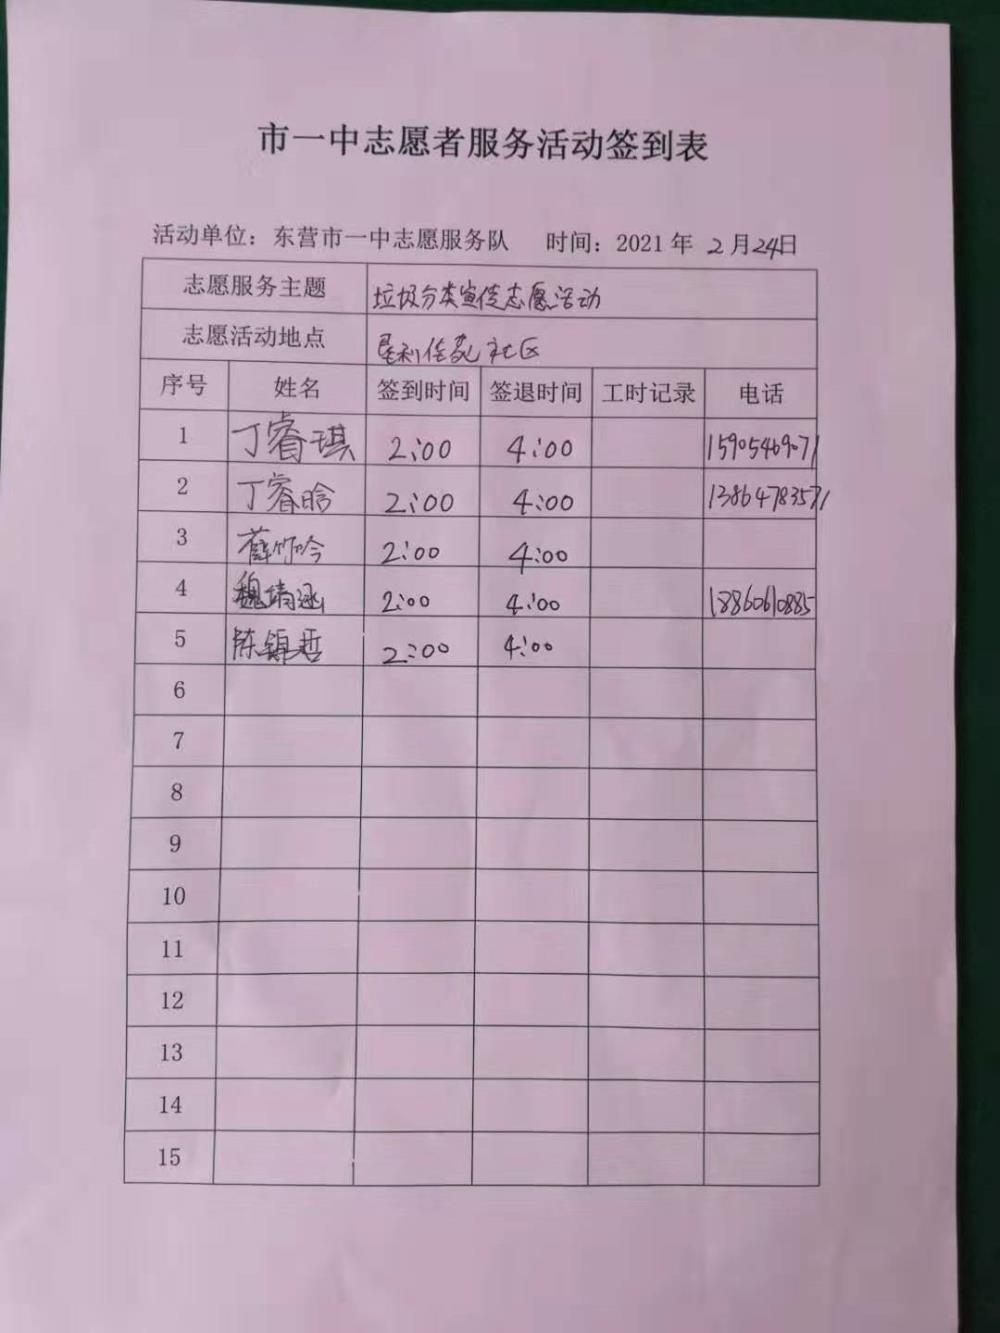 市一中志愿者服务活动签到表
活动单位：东营市一中志愿服务队 时间：2021 年 2 月 24日
志愿服务主题 垃圾分类宣传志愿活动
志愿活动地点 垦利佳苑社区
序号 姓名 签到时间 签退时间 工时记录 电话
1 丁睿琪 2:00 4:00 15905469071
2 丁睿晗 2:00 4:00 13864783571
3 薛竹吟 2:00 4:00
4 魏靖涵 2:00 4:00 18860610885
5 陈锦哲 2:00 4:00
6
7
8
9
10
11
12
13
14
15